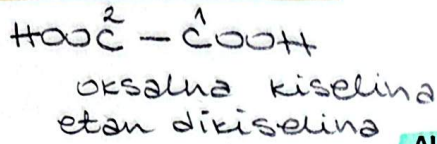 HOOC² – C¹OOH
oksalna kiselina
etan dikiselina